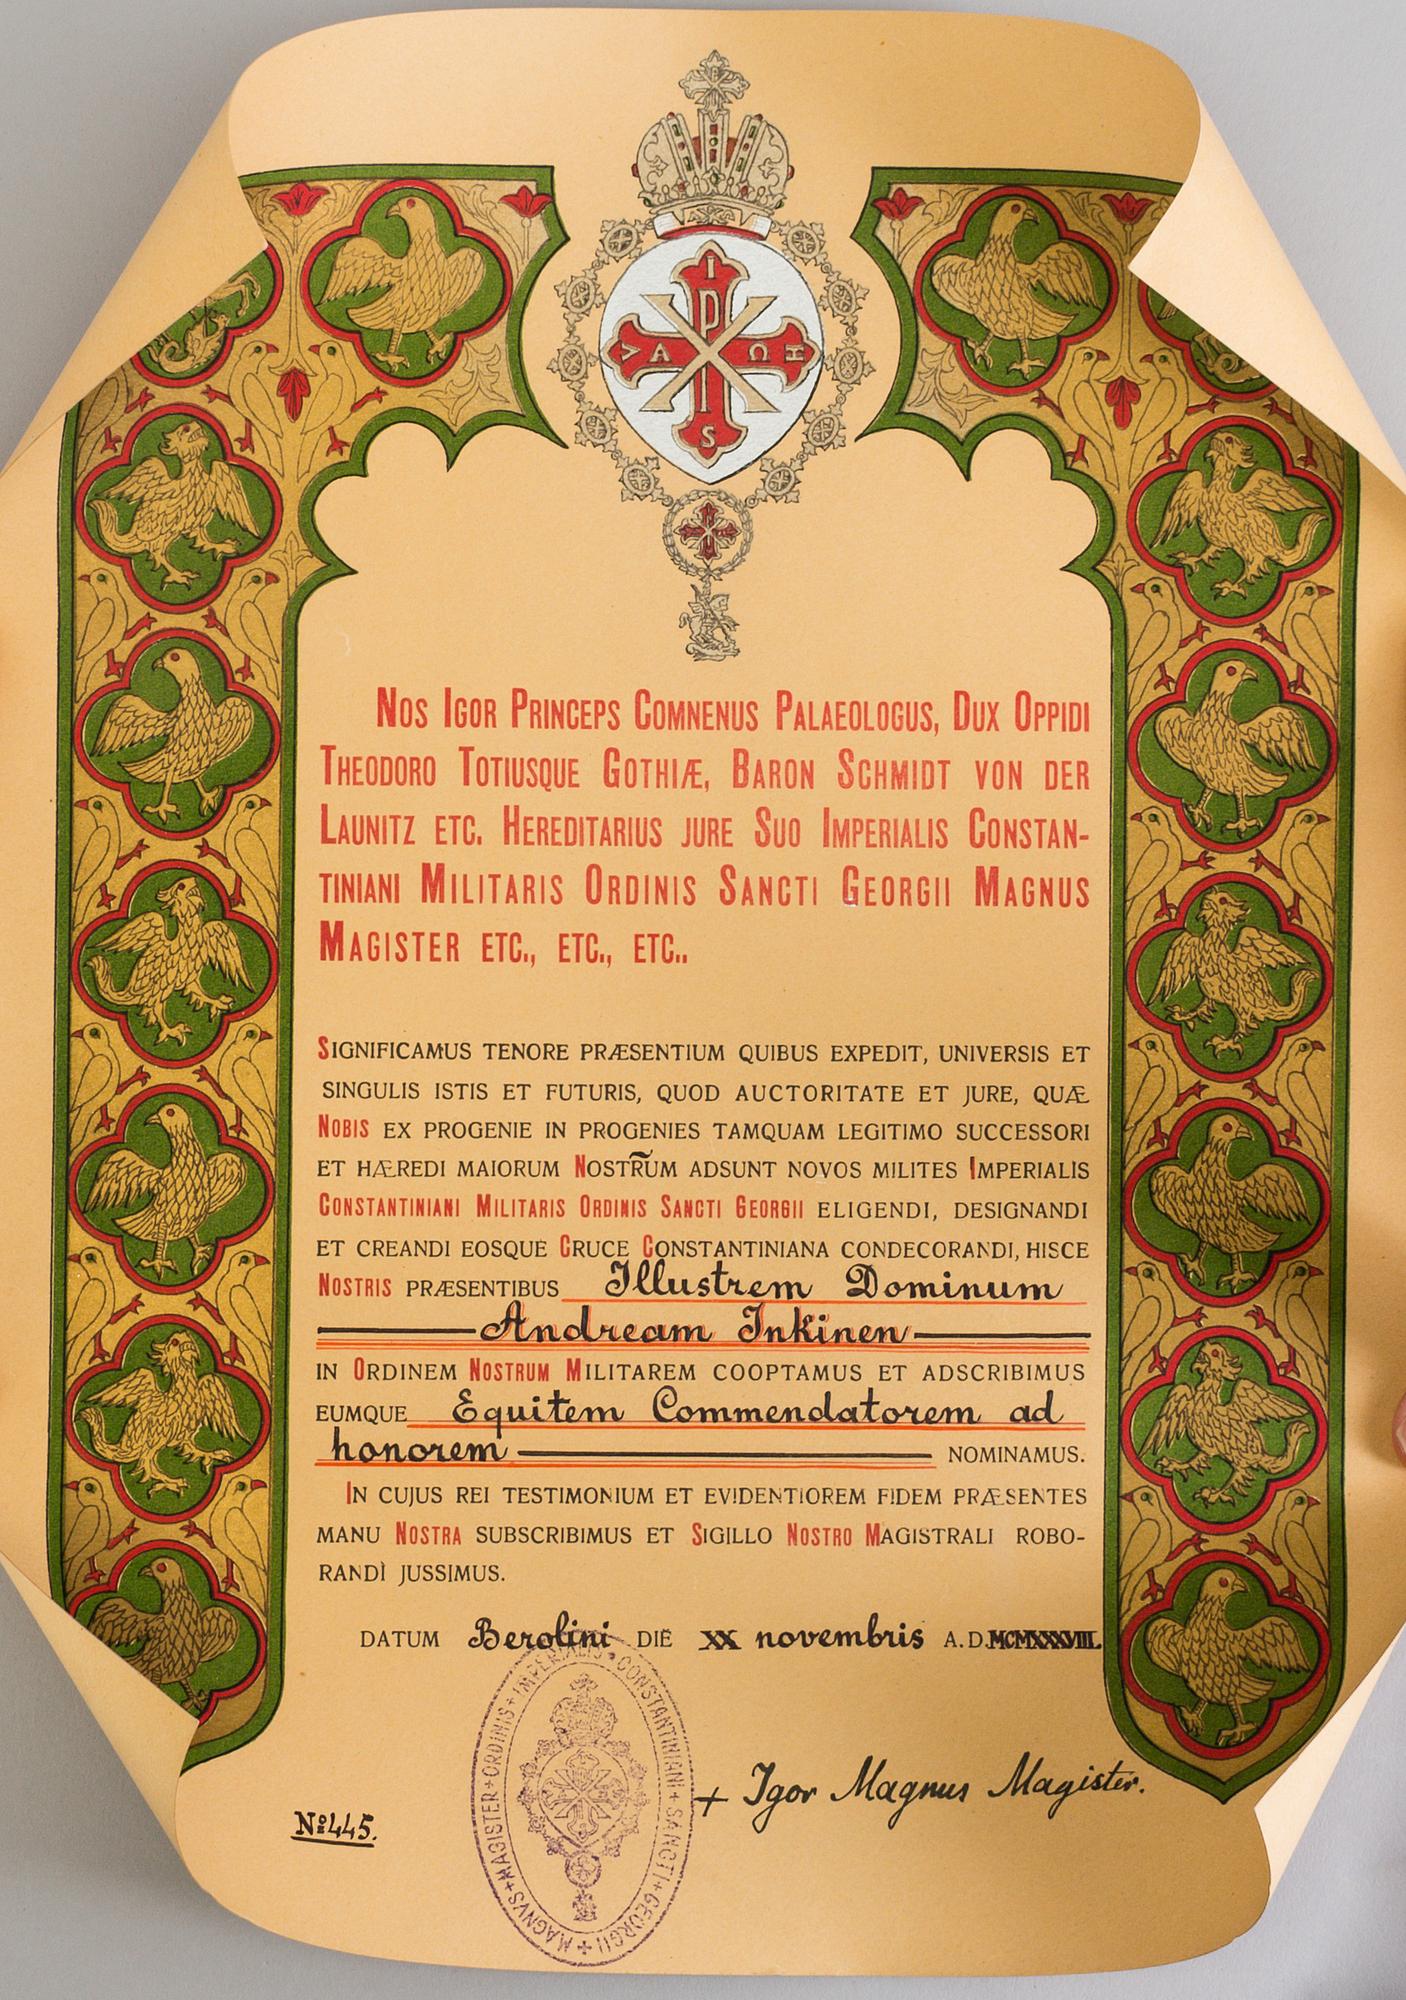 I
P
V A Ω H
S
NOS IGOR PRINCEPS COMNENUS PALAEOLOGUS, DUX OPPIDI
THEODORO TOTIUSQUE GOTHIÆ, BARON SCHMIDT VON DER
LAUNITZ ETC. HEREDITARIUS JURE SUO IMPERIALIS CONSTAN-
TINIANI MILITARIS ORDINIS SANCTI GEORGII MAGNUS
MAGISTER ETC., ETC., ETC..
SIGNIFICAMUS TENORE PRÆSENTIUM QUIBUS EXPEDIT, UNIVERSIS ET
SINGULIS ISTIS ET FUTURIS, QUOD AUCTORITATE ET JURE, QUÆ
NOBIS EX PROGENIE IN PROGENIES TAMQUAM LEGITIMO SUCCESSORI
ET HÆREDI MAIORUM NOSTR̃UM ADSUNT NOVOS MILITES IMPERIALIS
CONSTANTINIANI MILITARIS ORDINIS SANCTI GEORGII ELIGENDI, DESIGNANDI
ET CREANDI EOSQUE CRUCE CONSTANTINIANA CONDECORANDI, HISCE
NOSTRIS PRÆSENTIBUS Illustrem Dominum
Andream Inkinen
IN ORDINEM NOSTRUM MILITAREM COOPTAMUS ET ADSCRIBIMUS
EUMQUE Equitem Commendatorem ad
honorem NOMINAMUS.
IN CUJUS REI TESTIMONIUM ET EVIDENTIOREM FIDEM PRÆSENTES
MANU NOSTRA SUBSCRIBIMUS ET SIGILLO NOSTRO MAGISTRALI ROBO-
RANDÌ JUSSIMUS.
DATUM Berolini DIE XX novembris A.D. MCMXXXVIII.
MAGNVS+MAGISTER+ORDINIS+IMPERIALIS•CONSTANTINIANI+SANCTI+GEORGII+
+ Igor Magnus Magister.
№445.